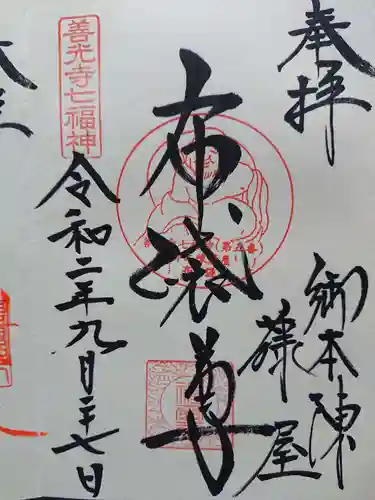 奉拝
御本陳
藤屋
布袋尊
善光寺七福神
令和二年九月二十七日